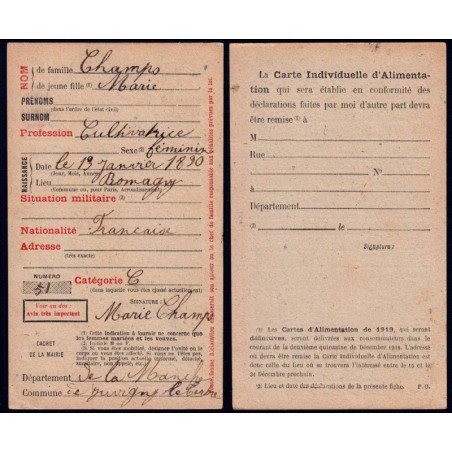 NOM
de famille Champs
de jeune fille (1) Marie
PRÉNOMS
(dans l'ordre de l'état civil)
SURNOM
Profession Cultivatrice
Sexe (2) féminin
NAISSANCE
Date le 13 Janvier 1890
(Jour, Mois, Année)
Lieu Romagny
(Commune ou, pour Paris, Arrondissement)
Situation militaire (3)
Nationalité Française
Adresse
(très exacte)
NUMÉRO
51
Catégorie C
(dans laquelle vous êtes classé actuellement)
Voir au dos :
Avis très important
SIGNATURE :
Marie Champs
CACHET
DE LA MAIRIE
(1) Cette indication à fournir ne concerne que
les femmes mariées et les veuves.
(2) Indiquer M ou F.
Département de la Manche
Commune de Juvigny le Tertre
La Carte Individuelle d'Alimenta-
tion qui sera établie en conformité des
déclarations faites par moi d'autre part devra
être remise (1) à
M
Rue
N°
à
Département
(2) le
Signature :
(1) Les Cartes d'Alimentation de 1919, qui seront
définitives, seront délivrées aux consommateurs dans le
courant de la deuxième quinzaine de Décembre
devra être remise la Carte Individuelle d'Alimentation est
donc celle du lieu où se trouvera l'intéressé entre le 15 et le
31 Décembre prochain.
(2) Lieu et date des déclarations de la présente fiche.
P. O.